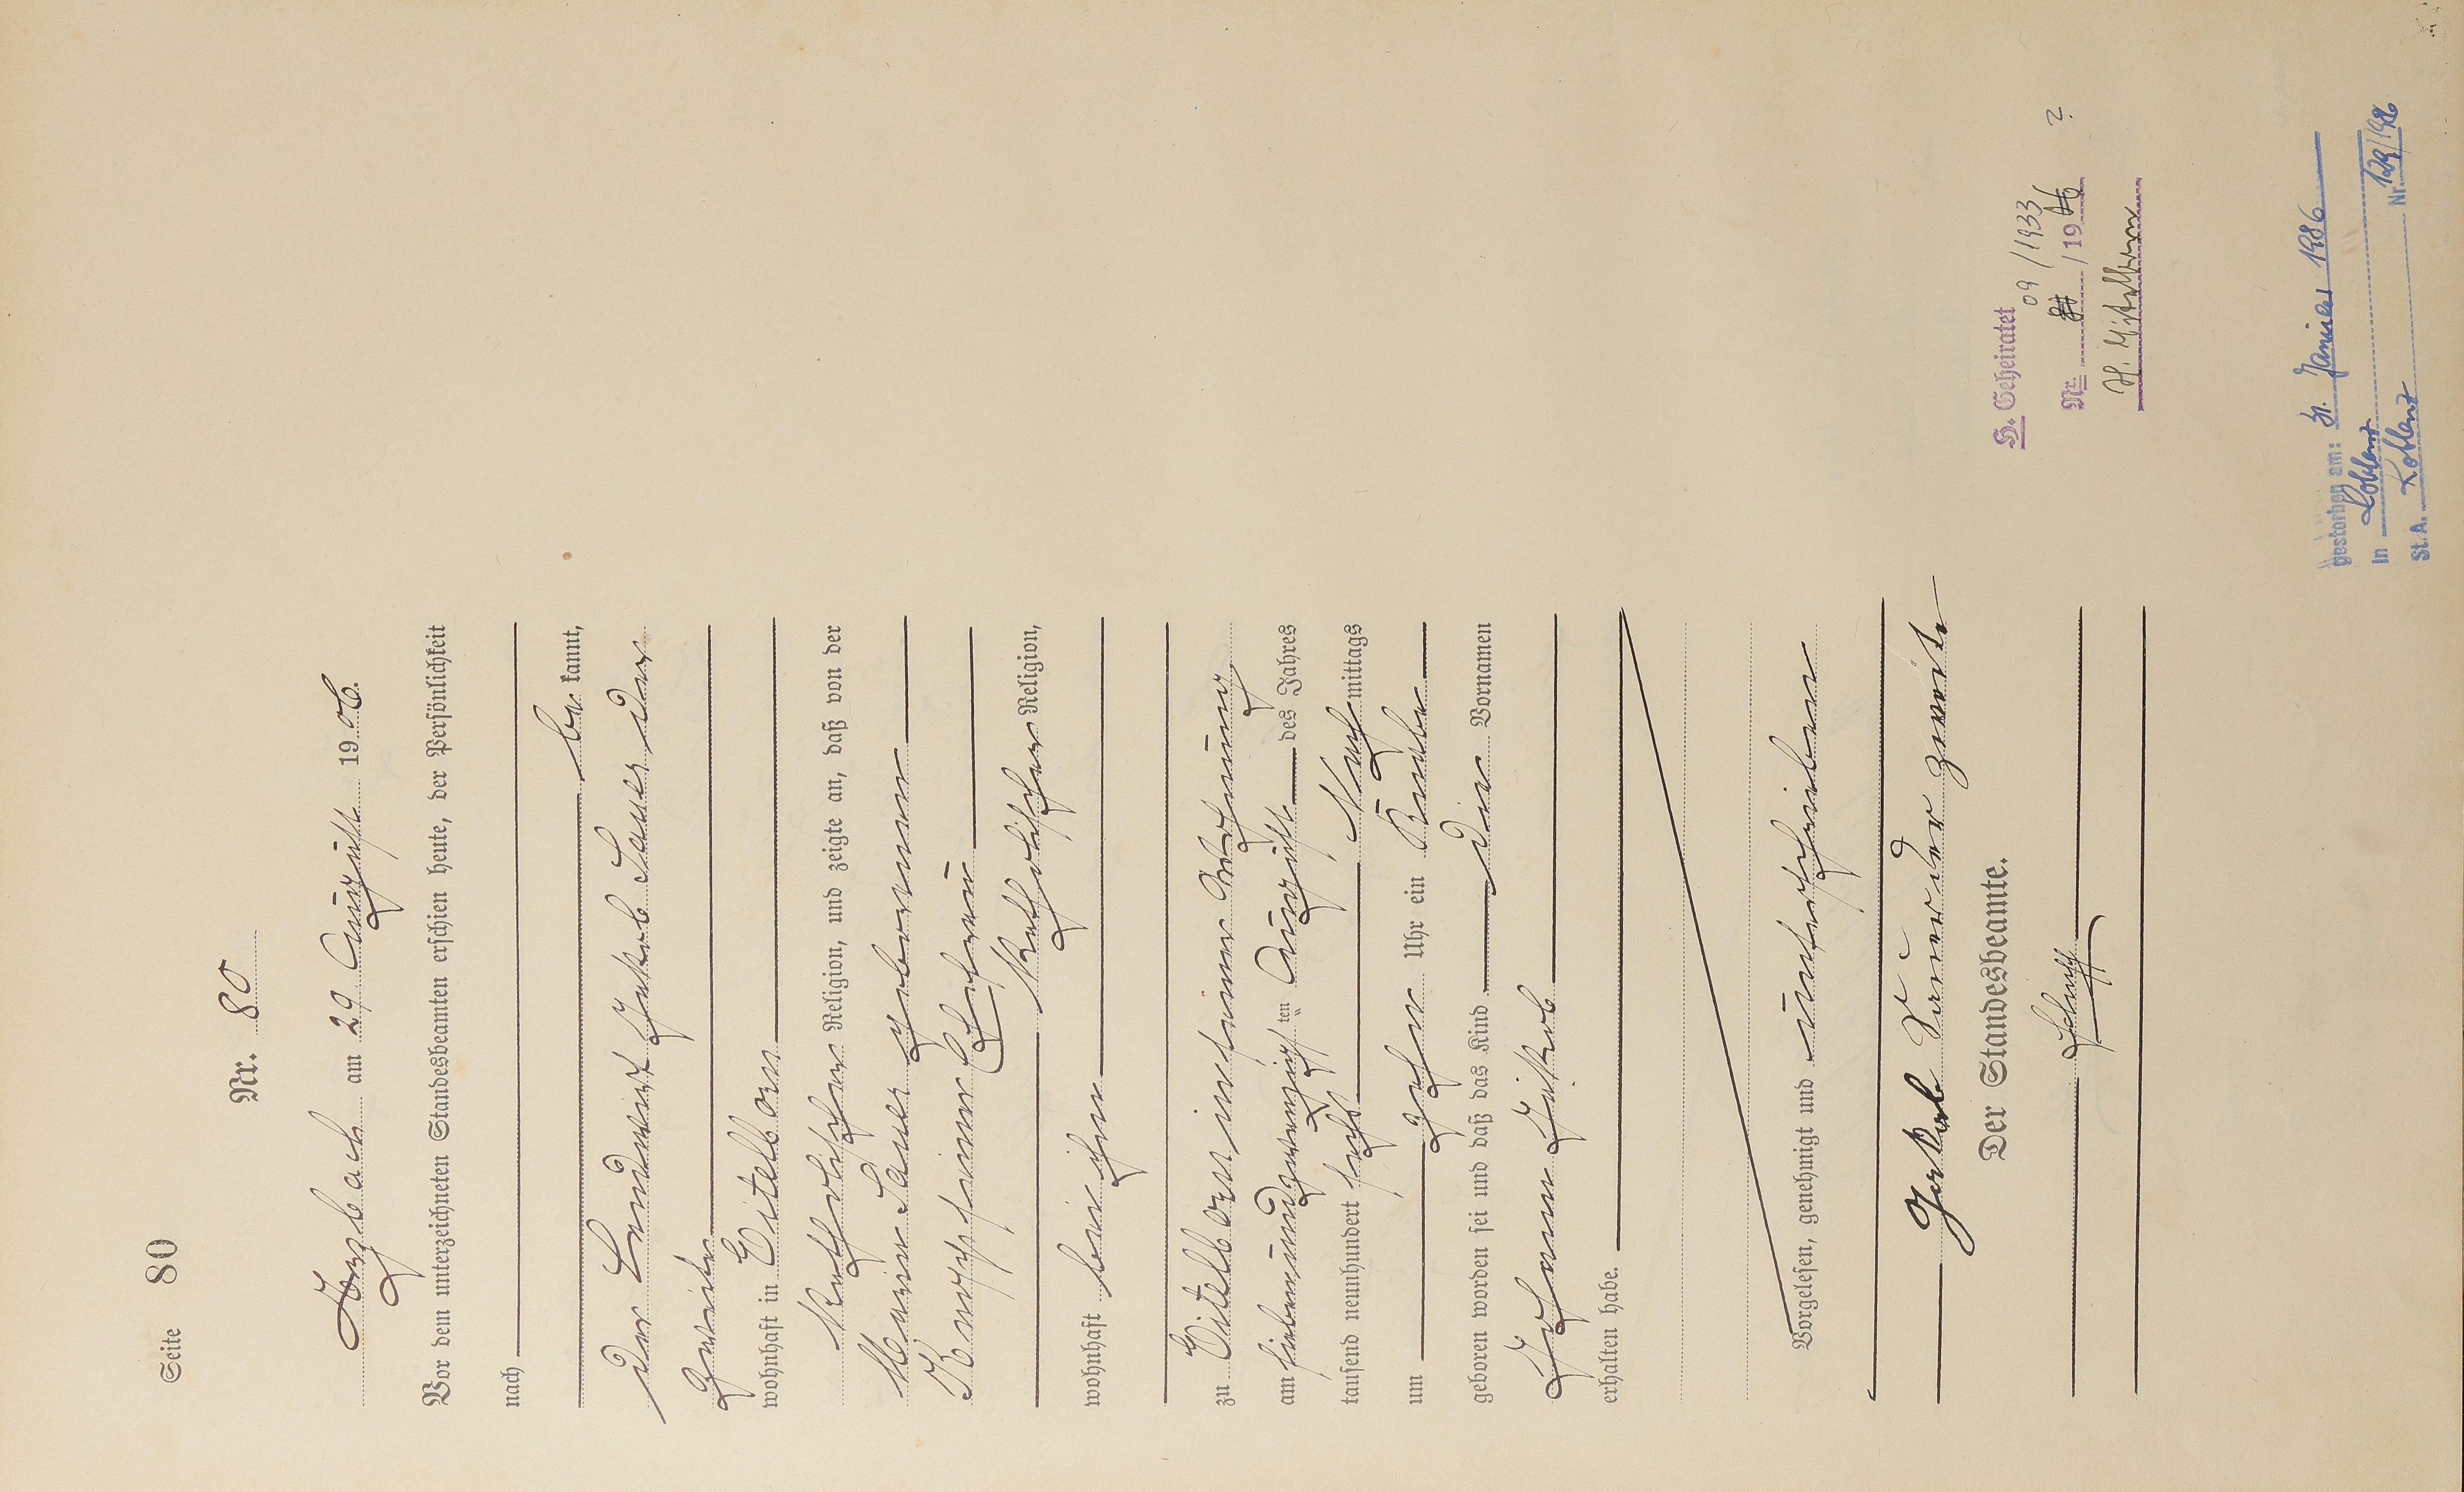 Seite 80
Nr. 80
Arzbach am 29 August 1906.
Vor dem unterzeichneten Standesbeamten erschien heute, der Persönlichkeit
nach
be kannt,
der Landwirt Jakob Sauer der
zweite
wohnhaft in Eitelborn
katholischer Religion, und zeigte an, daß von der
Maria Sauer geborenen
Knopp seiner Ehefrau
katholischer Religion,
wohnhaft bei ihm
zu Eitelborn in seiner Wohnung
am siebenundzwanzigsten August des Jahres
tausend neunhundert sechs Nachmittags
um zehn Uhr ein Knabe
geboren worden sei und daß das Kind die Vornamen
Johann Jakob
erhalten habe.
Vorgelesen, genehmigt und unterschrieben
Jakob Sauer der zweite
Der Standesbeamte.
H. Geheiratet
09/1933
Nr. /19 ?
gestorben am: 31. Januar 1986
in Koblenz
St. A. Koblenz Nr. 129/1986